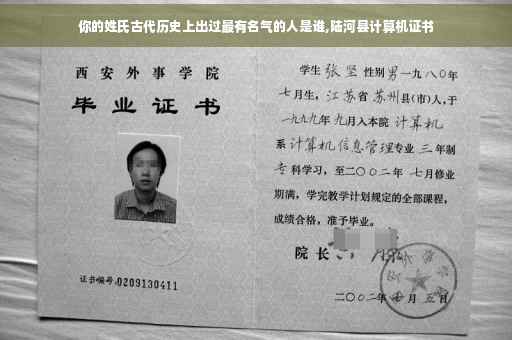 你的姓氏古代历史上出过最有名气的人是谁,陆河县计算机证书
西安外事学院
毕业证书
证书编号:0209130411
学生 张坚 性别 男 一九八〇年
七月生, 江苏省 苏州 县(市)人, 于
一九九九年 九月入本院 计算机
系 计算机信息管理 专业 三 年制
专科学习, 至二〇〇二年 七月修业
期满, 学完教学计划规定的全部课程,
成绩合格, 准予毕业。
院长
二〇〇二年 七月 五日